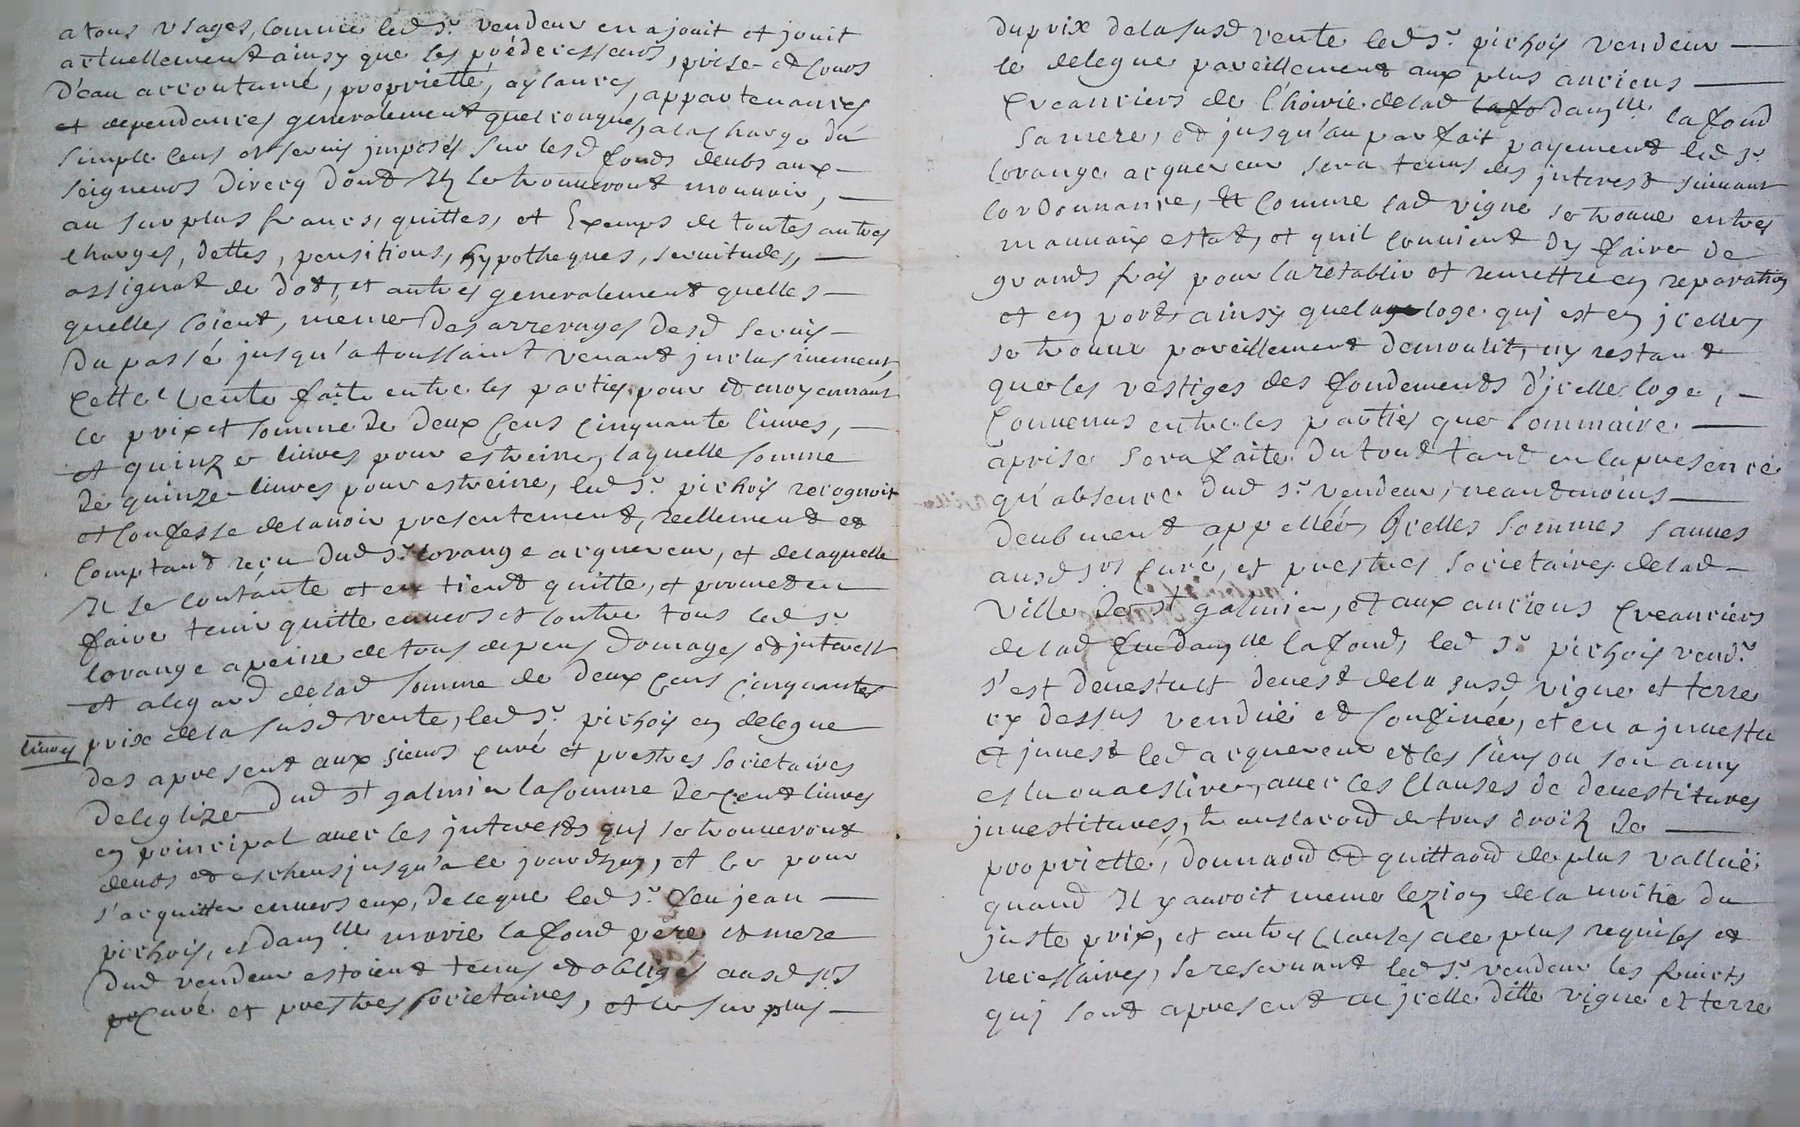 a tous usages, comme led sr. vendeur en a jouit et jouit
actuellement ainsy que ses prédecesseurs, prise et cours
d'eau accoutumé, proprietté, aysances, appartenances
et dependances generalement quelconques, a la charge du
simple cens et servis imposés sur lesd fonds deubs aux
seigneurs direcq dont ils se trouveront mouvoir,
au surplus francs, quittes, et Exemps de toutes autres
charges, dettes, pensitions, hypotheques, servitudes,
assignat de dot, et autres generalement quelles
quelles soient, meme des arrerages desd servis
du passé jusqu'a toussaint venant inclusivement
cette vente faite entre les parties pour et moyennant
le prix et somme de deux cens cinquante livres,
et quinze livres pour estreine, laquelle somme
de quinze livres pour estreine, led sr. pichois recognoit
et confesse de lavoir presentement, reellement et
comptant reçu dud sr. lorange acquereur, et de laquelle
il se contante et en tient quitte, et promet en
faire tenir quitte envers et contre tous led sr
lorange a peine de tous depens domages et interest
et a legard de lad somme de deux cens cinquante
livres prix de la susd vente, led sr. pichois en delegue
des a present aux sieurs curé et prestres societaires
de leglize dud st galmier la somme de cent livres
en principal avec les interests qui se trouveront
deubs et escheus jusqu'a ce jourdhuy, et ce pour
s'acquitter envers eux, de ce que led sr. feu jean
pichois, et damlle marie lafond pere et mere
dud vendeur estoient tenus et obligés ausd srs
curé et prestres societaires, et le surplus
du prix de la susd vente led sr. pichois vendeur
le delegue pareillement aux plus anciens
creanciers de l'hoirie de lad damlle lafond
sa mere, et jusqu'au parfait payement led sr
lorange acquereur sera tenus des interest suivant
lordonnance, Et comme lad vigne se trouve en tres
mauvaix estat, et quil convient dy faire de
grands frais pour la rétablir et remettre en reparation
et en port ainsy que la loge qui est en icelle
se trouve pareillement demoulit, ny restant
que les vestiges des fondements d'icelle loge,
Convenus entre les parties que sommaire
aprise sera faite du tout tant en la presence
qu'absence dud sr. vendeur, neantmoins
deubment appellée, Icelles sommes sauves
ausd srs curé, et prestres societaires de lad
ville de st galmier, et aux anciens creanciers
de lad damlle lafond, led sr pichois vendr
s'est devestu et devest de la susd vigne et terre
cy dessus vendüe et confinée, et en a jnvestu
et jnvest led acquereur et les siens ou son amy
eslu ou a eslire, avec les clauses de devestitures
jnvestitures, translaond de tous droits de
proprietté, donnaond et quittaond de plus valluë
quand il y auroit meme lezion de la moitié du
juste prix, et autres clauses a ce plus requises et
necessaires, se reservant led sr. vendeur les fruicts
qui sont a present en jcelle ditte vigne et terre